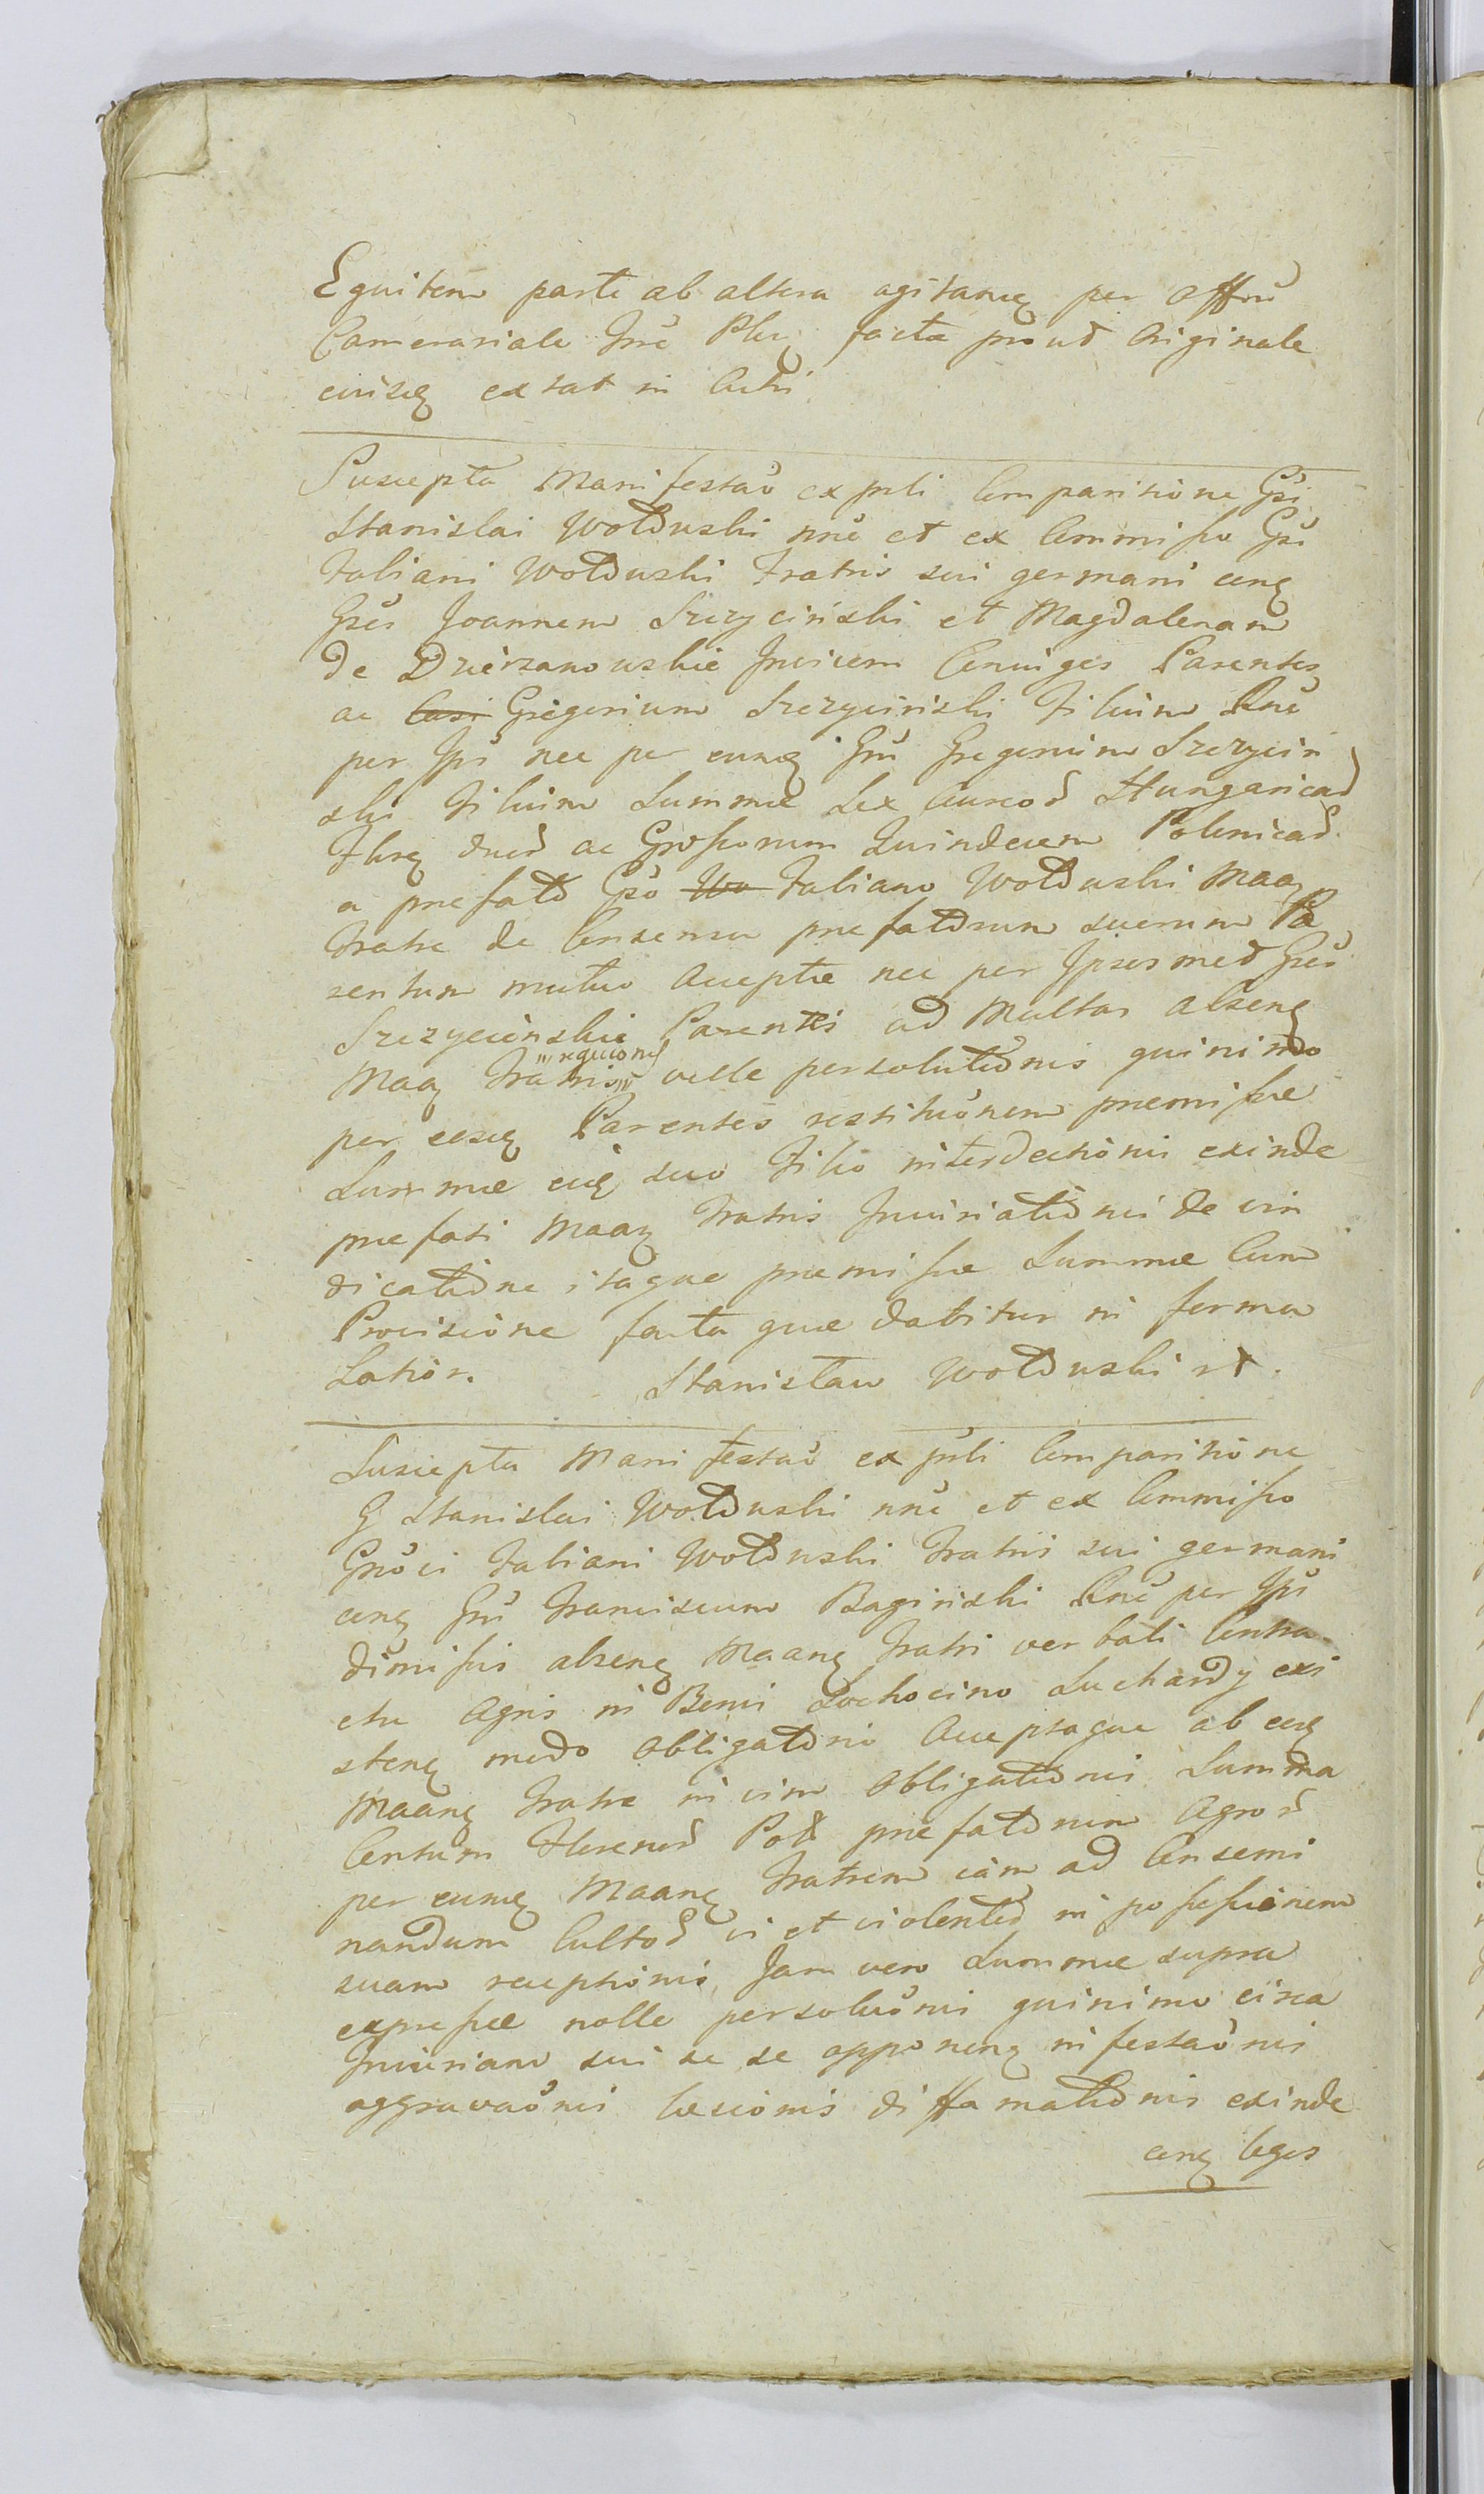 Equitem parte ab altera agitanq per Offm
Camerariale Tre Plu facta prout Originale
eiusq extat in Actis
Suscepta Manifestao ex psli Comparitione Gsi
Stanislai Wołduski nne et ex Commisso Gsi
Fabiani Wołduski Fratris sui germani conq
Gses Joannem Szczyciński et Magdalenam
de Dzierzanowskie Invicem Coniuges Parentes
ac Casi Gregorium Szczyciński Filium Rne
per Ipś nec per eunq Gsu Gregorium Szczyciń
ski Filium Summae Sex Aureod Hungaricad
Flsrq dued ac Grossorum Quindecem Polonicad
a praefato Gso Wo Fabiano Wołduski Maa
Fratre de Consensu praefatorum suorum Pa
rentum mutuo Acceptae nec per Ipsosmet Gses
Szczycińskie Parentes ad Multas Absenq
Maaq Fratris requisiones velle persolutionis quinimo
per eosq Parentes restitutionem praemissae
Summae eiq suo Filio interdectionis exinde
praefati Maaq Fratris Iniuriationis de vin
dicatione itaque praemissae Summae Cum
Provisione facta quae dabitur in forma
Latior. Stanisław Wołduski rt.
Suscepta Manifestao ex psli Comparitione
G Stanislai Wołduski nne et ex Commisso
Gnosi Fabiani Wołduski Fratris sui germani
conq Gsu Franciscum Bagiński Rne per Ipś
dimissis absenq Maanq Fratri verbali Contra
ctu Agris in Bonis Łochocino Łuchardy exi
stenq modo obligatorio Acceptaque ab eoq
Maanq Fratre in vim Obligationis Summa
Centum Florenod Pol praefatorum Agrod
per eunq Maanq Fratrem iam ad Consemi
nandum Cultod vi et violenter in possessionem
suam receptionis, Jam vero Summae supra
expressae nolle persolutionis quinimo circa
Iniuriam sui ac se opponenq infestationis
aggravaonis laesionis diffamationis exinde
conq leges